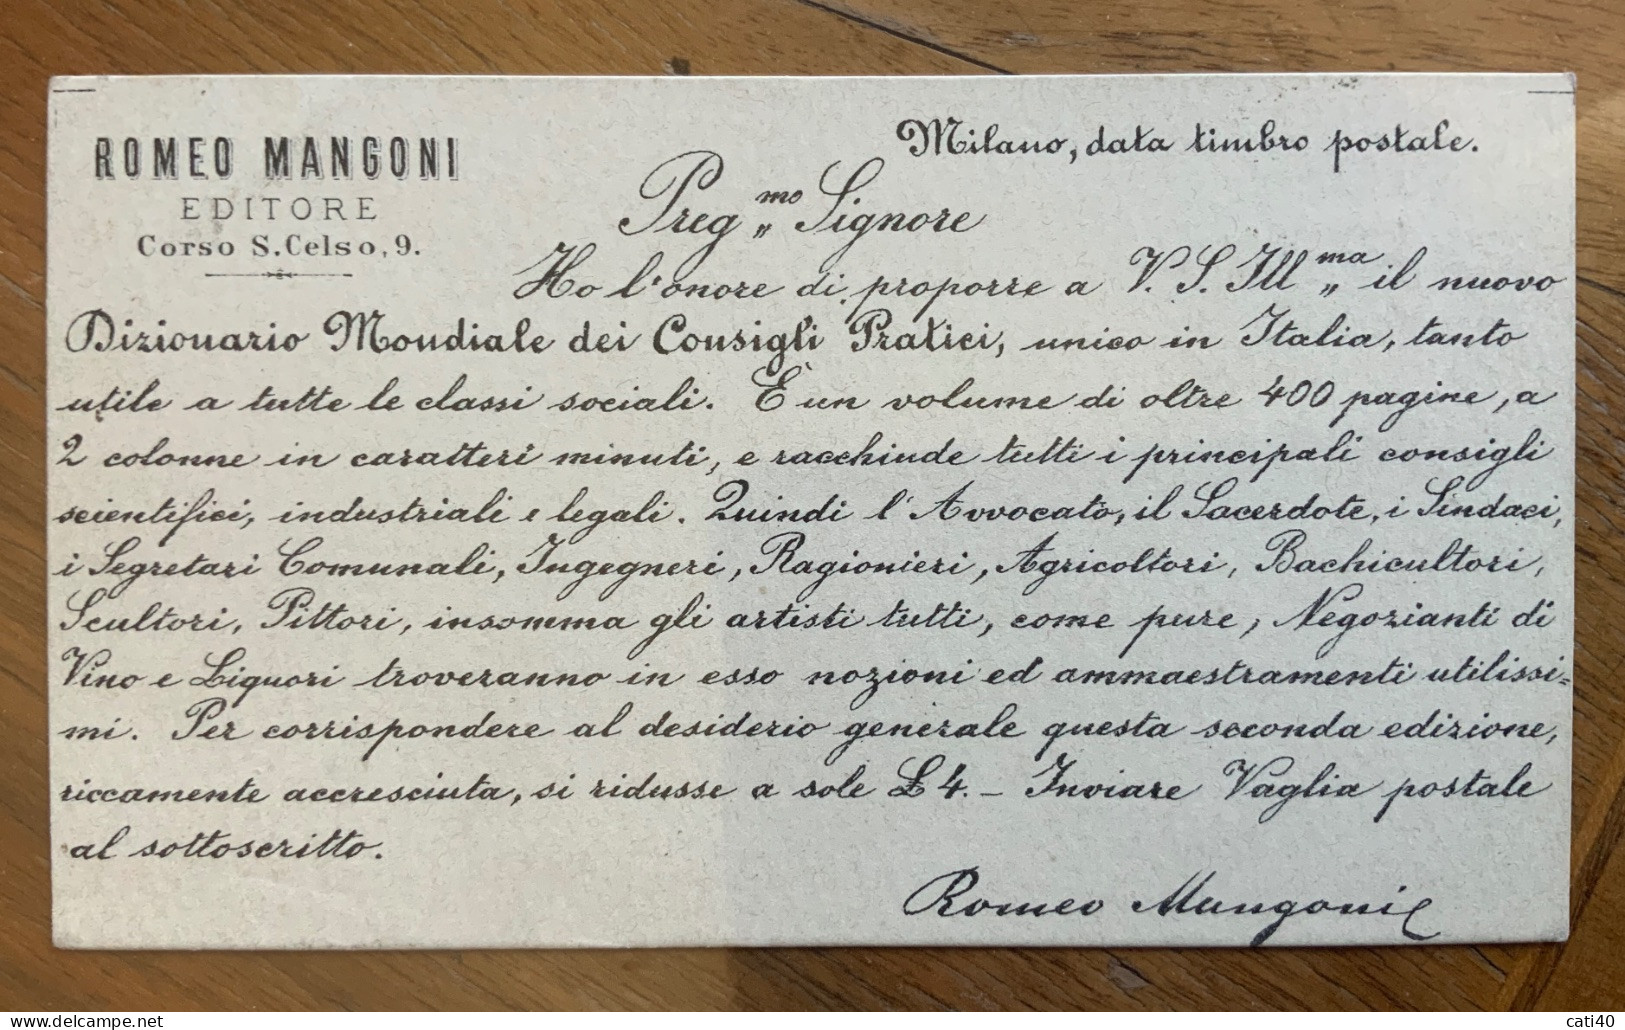 ROMEO MANGONI
EDITORE
Corso S. Celso, 9.
Milano, data timbro postale.
Preg.mo Signore
Ho l'onore di proporre a V. S. Ill.ma il nuovo
Dizionario Mondiale dei Consigli Pratici, unico in Italia, tanto
utile a tutte le classi sociali. È un volume di oltre 400 pagine, a
2 colonne in caratteri minuti, e racchiude tutti i principali consigli
scientifici, industriali e legali. Quindi l'Avvocato, il Sacerdote, i Sindaci,
i Segretari Comunali, Ingegneri, Ragionieri, Agricoltori, Bachicultori,
Scultori, Pittori, insomma gli artisti tutti, come pure, Negozianti di
Vino e Liquori troveranno in esso nozioni ed ammaestramenti utilissi=
mi. Per corrispondere al desiderio generale questa seconda edizione,
riccamente accresciuta, si ridusse a sole £ 4. – Inviare Vaglia postale
al sottoscritto.
Romeo Mangoni
https://www.delcampe.net
cati40